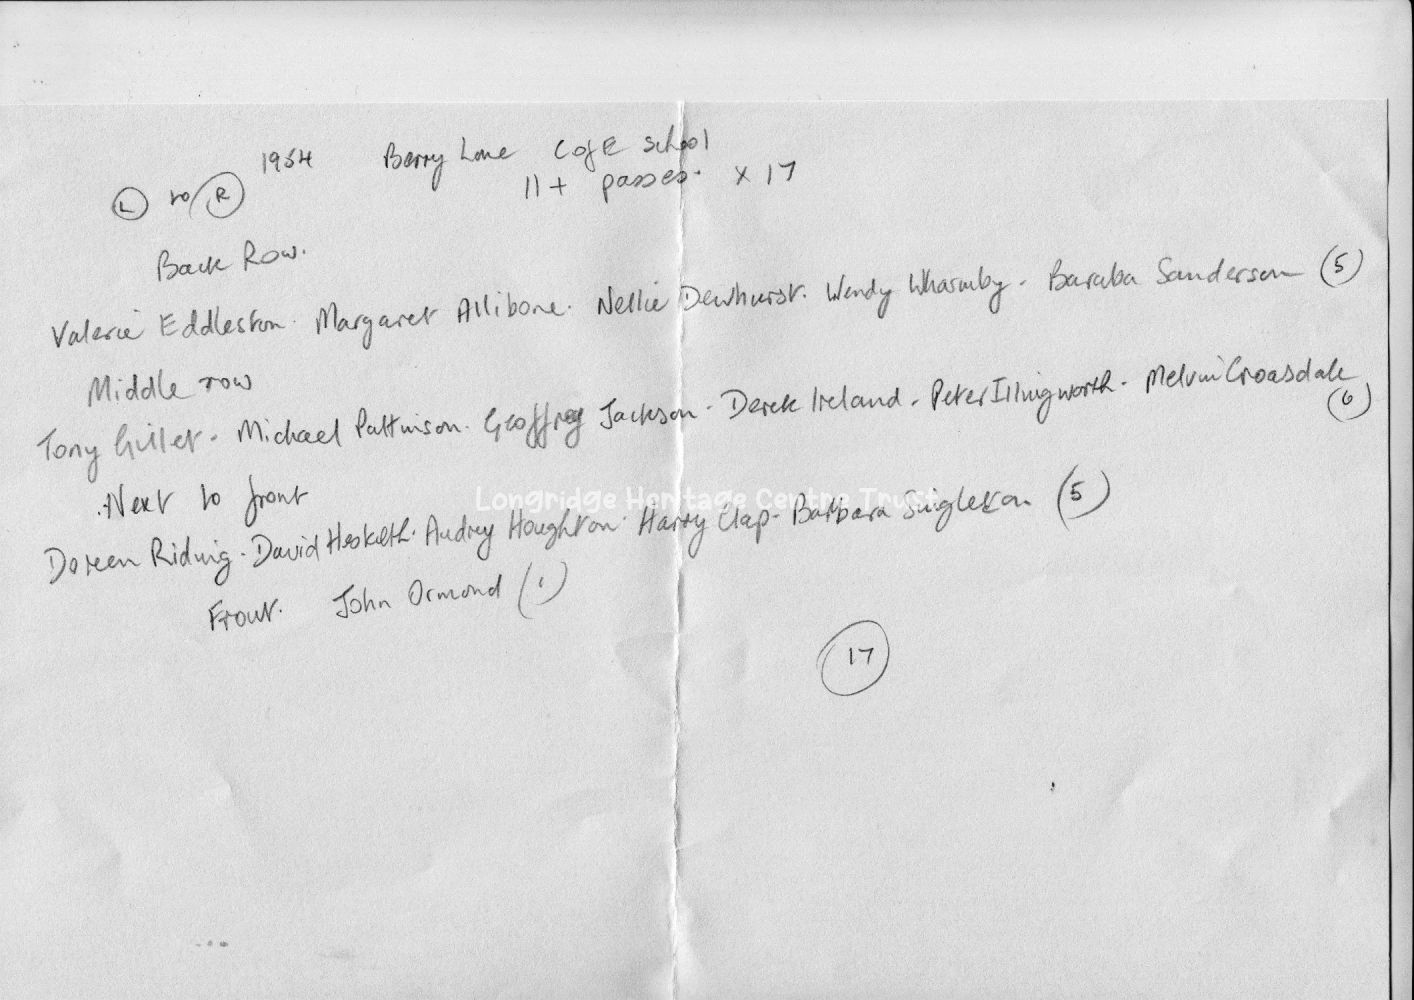 1954 Berry Lane C of E School
L to R 11+ passes. x 17
Back Row.
Valerie Eddleston. Margaret Allibone. Nellie Dewhurst. Wendy Wharmby. Baraba Sanderson (5)
Middle row
Tony Gillet. Michael Pattinson. Geoffrey Jackson. Derek Ireland. Peter Illingworth. Melvin Croasdale
(6)
Next to front
Doreen Riding. David Hesketh. Audrey Houghton. Harry Clap. Barbara Singleton (5)
Front. John Ormond (1)
17
Longridge Heritage Centre Trust